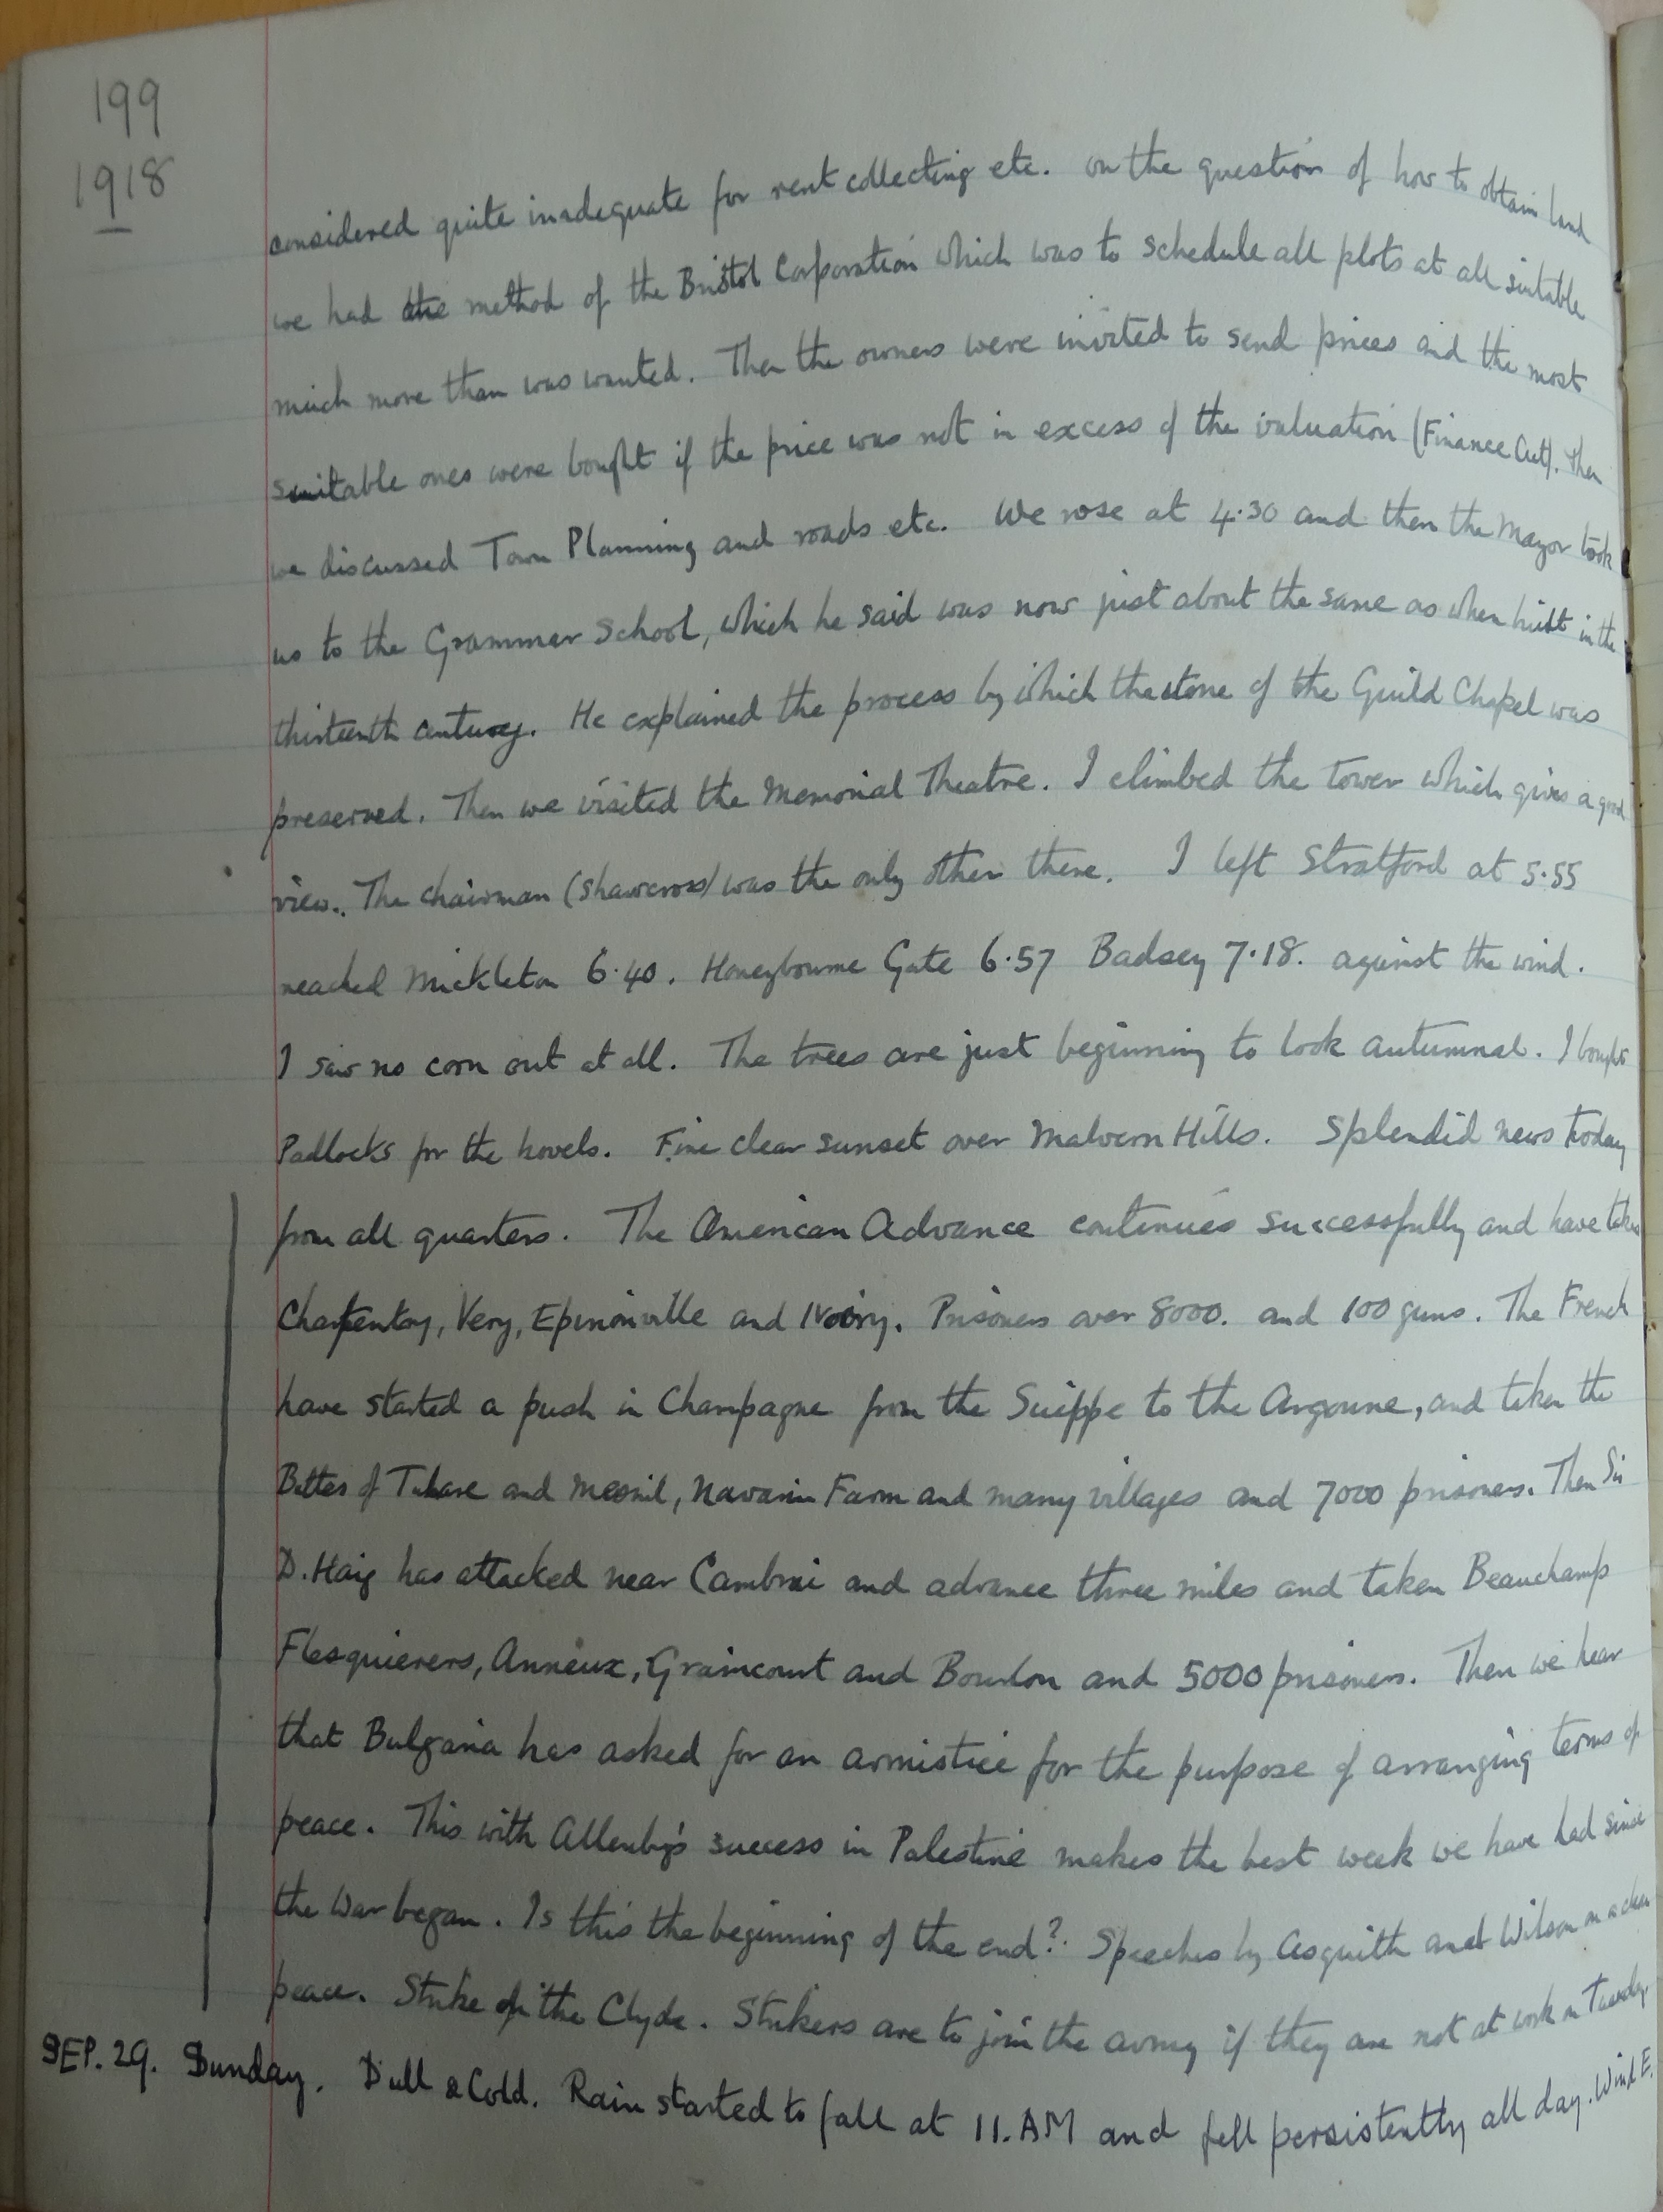 199
1918
considered quite inadequate for rent collecting etc. on the question of how to obtain land
we had the method of the Bristol Corporation which was to schedule all plots at all suitable
much more than was wanted. Then the owners were invited to send prices and the most
suitable ones were bought if the price was not in excess of the valuation (Finance Act). Then
we discussed Town Planning and roads etc. We rose at 4.30 and then the Mayor took
us to the Grammar School, which he said was now just about the same as when built in the
thirteenth century. He explained the process by which the stone of the Guild Chapel was
preserved. Then we visited the Memorial Theatre. I climbed the tower which gives a good
view. The chairman (Shawcross) was the only other there. I left Stratford at 5.55
reached Mickleton 6.40. Honeybourne Gate 6.57 Badsey 7.18. against the wind.
I saw no corn out at all. The trees are just beginning to look autumnal. I bought
Padlocks for the hovels. Fine clear sunset over Malvern Hills. Splendid news today
from all quarters. The American Advance continues successfully and have taken
Charpentry, Very, Epinonville and Ivoiry. Prisoners over 8000. and 100 guns. The French
have started a push in Champagne from the Suippe to the Argonne, and taken the
Buttes of Tahure and Mesnil, Navarin Farm and many villages and 7000 prisoners. Then Sir
D. Haig has attacked near Cambrai and advance three miles and taken Beauchamp
Flesquierers, Anneux, Graincourt and Bourlon and 5000 prisoners. Then we hear
that Bulgaria has asked for an armistice for the purpose of arranging terms of
peace. This with Allenby's success in Palestine makes the best week we have had since
the War began. Is this the beginning of the end? Speeches by Asquith and Wilson on a clean
peace. Strike on the Clyde. Strikers are to join the army if they are not at work on Tuesday.
SEP. 29. Sunday. Dull & Cold. Rain started to fall at 11. AM and fell persistently all day. Wind E.